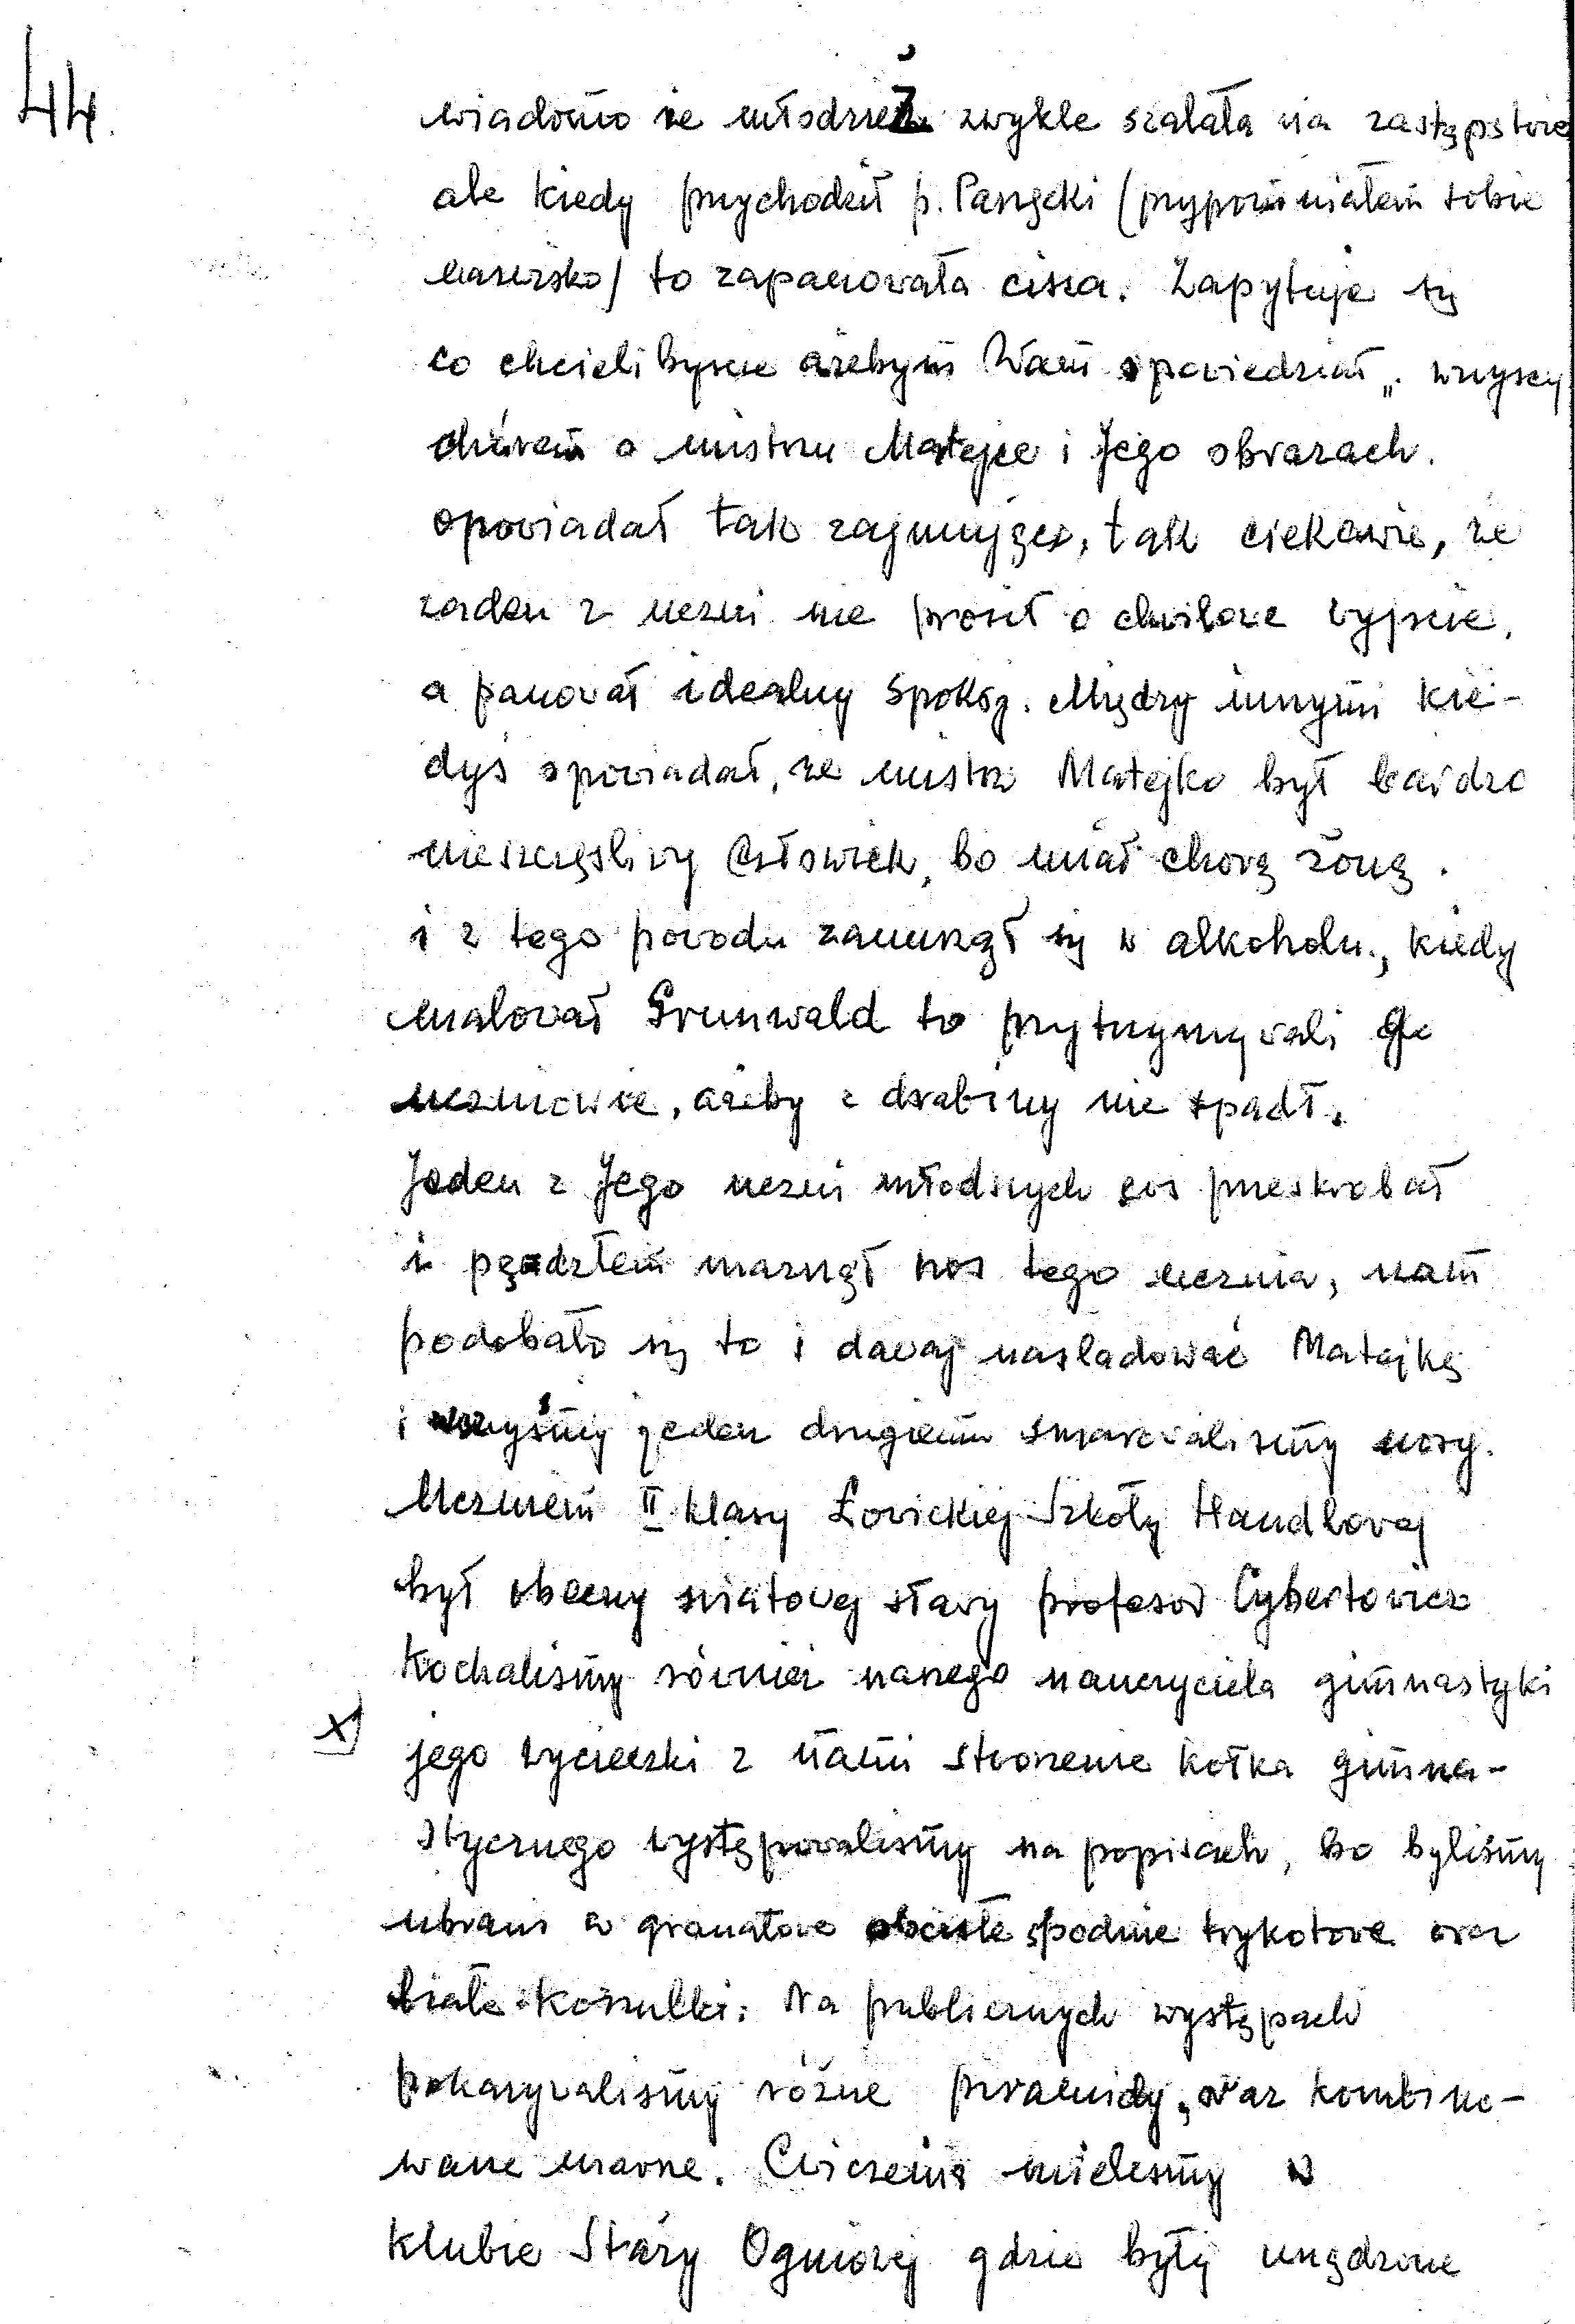 44.
wiadomo że młodzież zwykle szalała na zastępstwie
ale kiedy przychodził p. Pasęcki (przypomniałem sobie
nazwisko) to zapanowała cisza. Zapytuje się
co chcielibyście ażebym Wam opowiedział„. wszyscy
chórem o mistrzu Matejce i Jego obrazach.
opowiadał tak zajmująco, tak ciekawie, że
żaden z uczni nie prosił o chwilowe wyjście,
a panował idealny spokój. Między innymi kie-
dyś opowiadał, że mistrz Matejko był bardzo
nieszczęśliwy człowiek, bo miał chorą żonę.
i z tego powodu zamknął się w alkoholu, kiedy
malował Grunwald to przytrzymywali Go
uczniowie, ażeby z drabiny nie spadł.
Jeden z Jego uczni młodszych coś przeskrobał
i pędzlem maznął nos tego ucznia, nam
podobało się to i dawaj naśladować Matejkę
i wszyśmy jeden drugiemu smarowaliśmy nosy.
Uczniem II klasy Łowickiej Szkoły Handlowej
był obecny światowej sławy profesor Cybertowicz
Kochaliśmy również naszego nauczyciela gimnastyki
x) jego wycieczki z nami stworzenie kółka gimna-
stycznego występowaliśmy na popisach, bo byliśmy
ubrani w granatowe obcisłe spodnie trykotowe oraz
białe koszulki. Na publicznych występach
pokazywaliśmy różne piramidy, oraz kombino-
wane
Ćwiczenia mieliśmy w
klubie Straży Ogniowej gdzie były urządzone